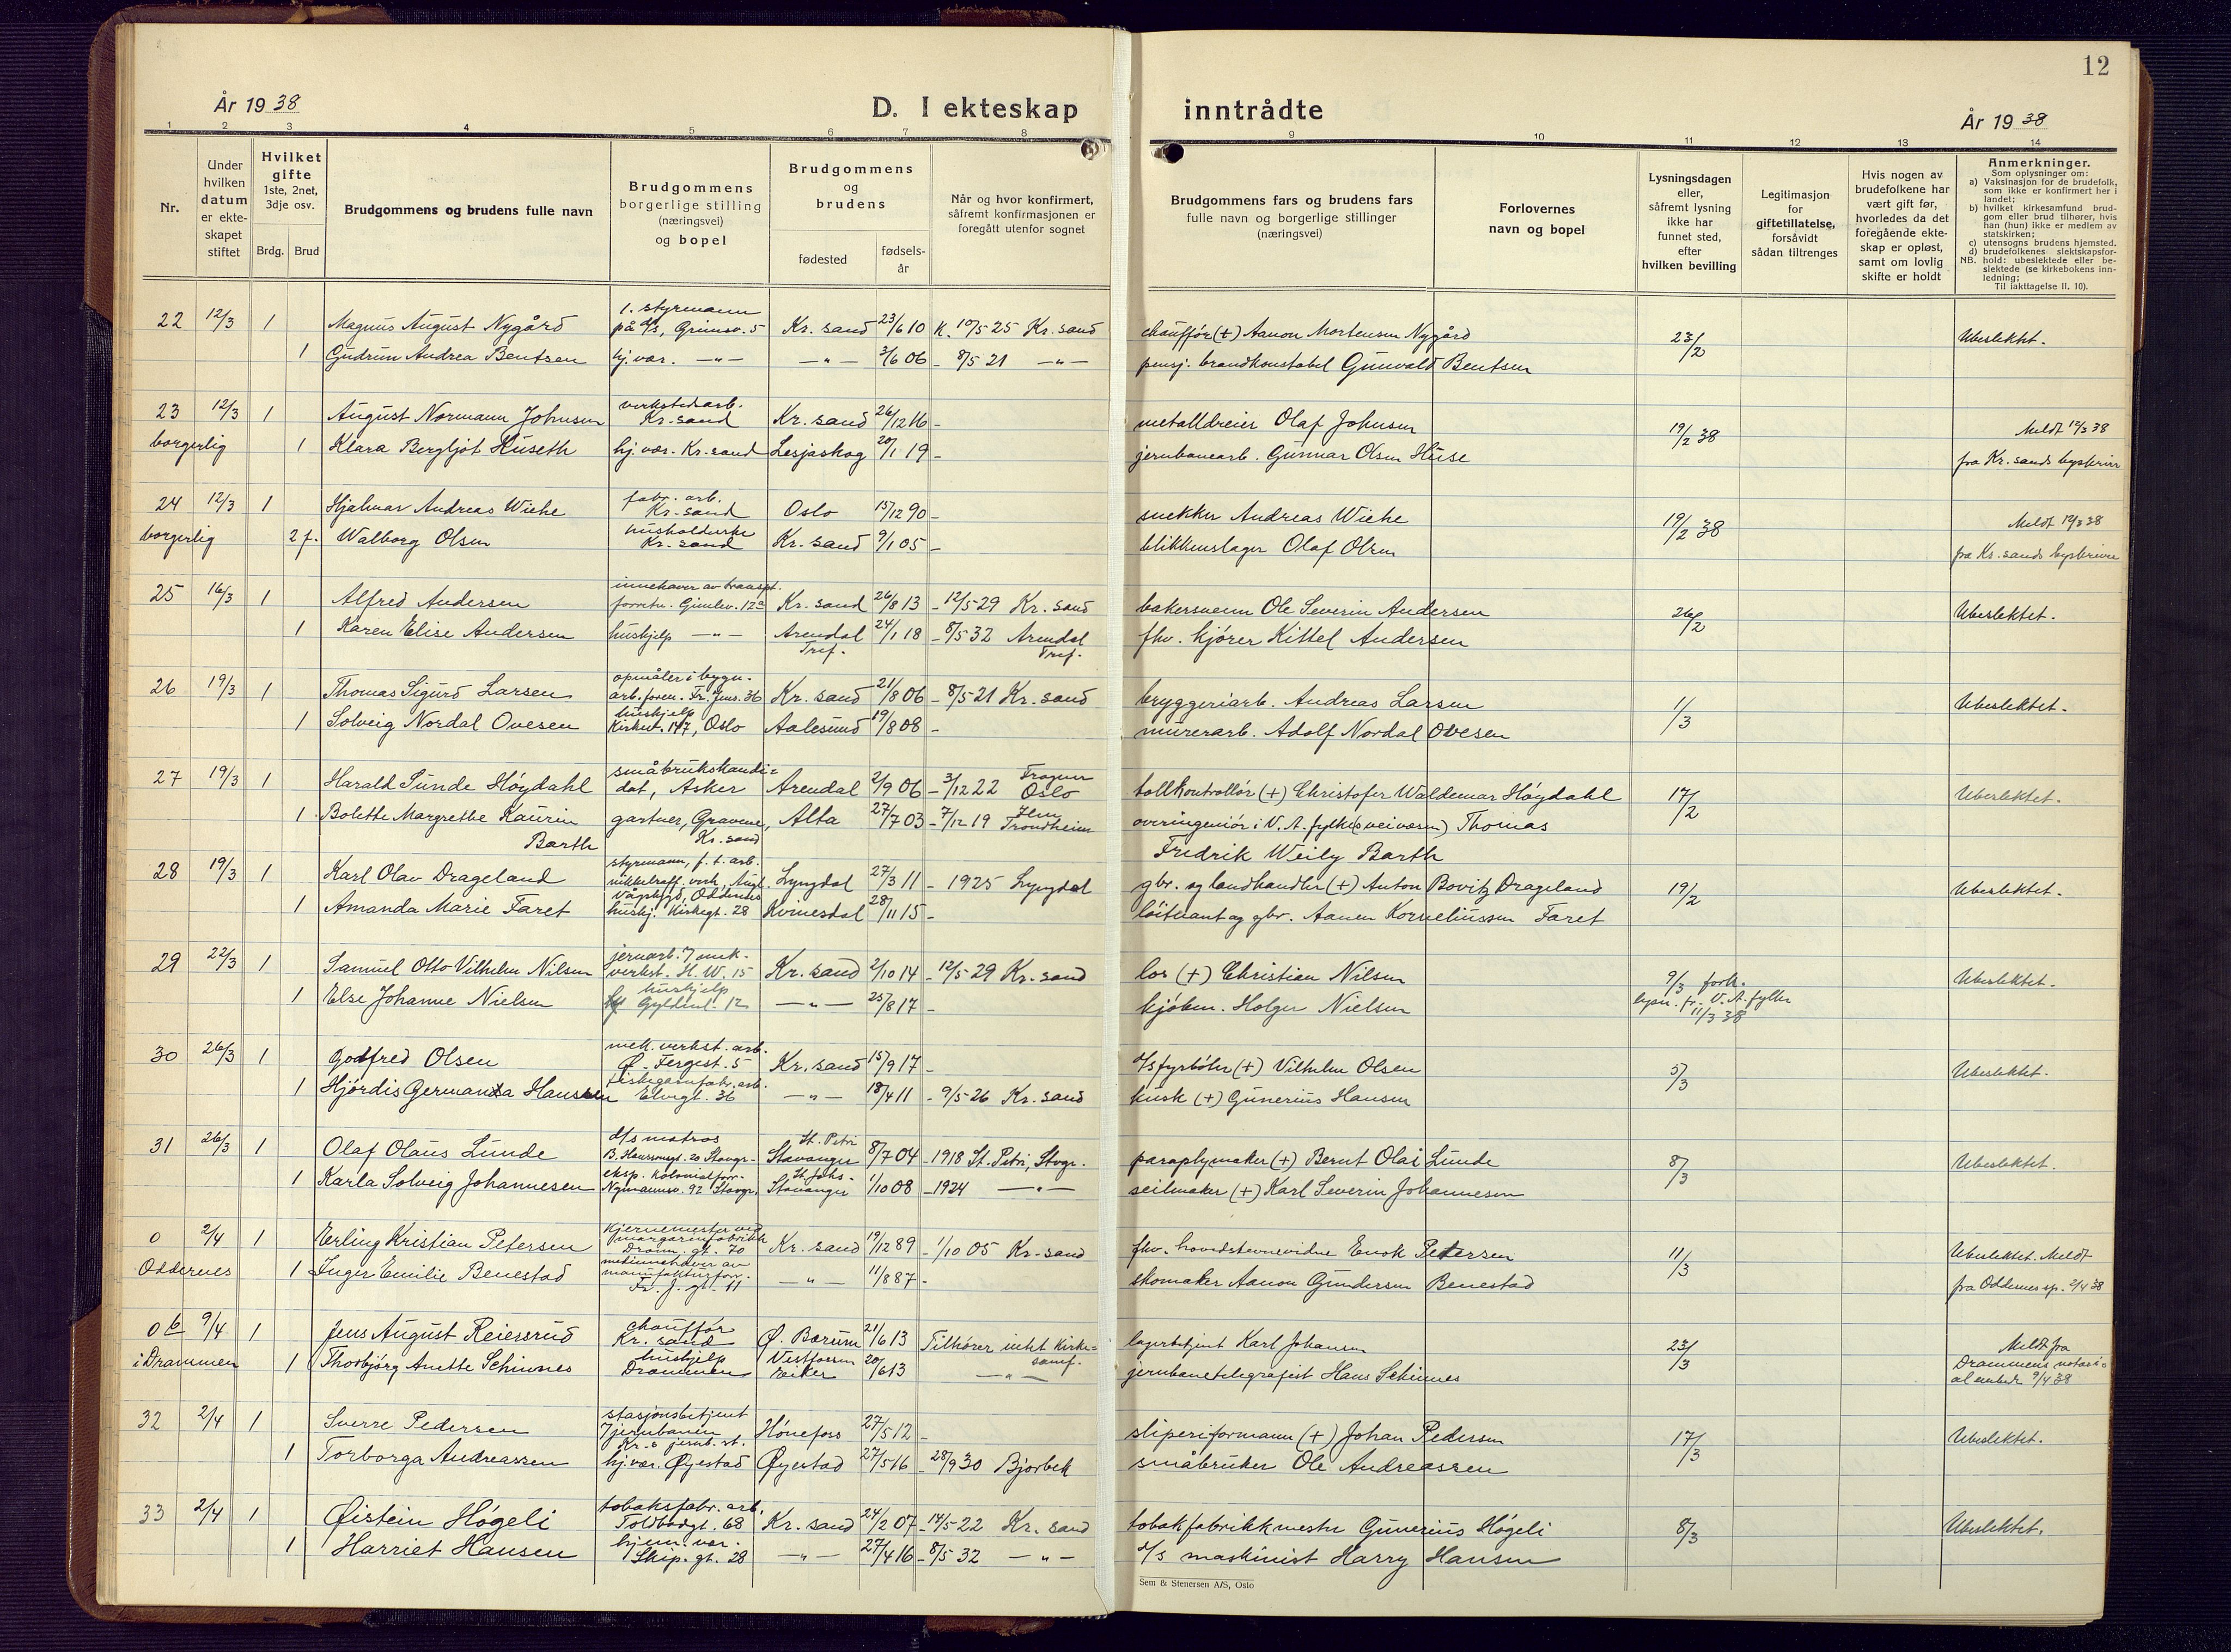 12
År 19 38
D. I ekteskap inntrådte
År 19 38
1 2 3 4 5 6 7 8 9 10 11 12 13 14
Nr.
Under hvilken datum er ekteskapet stiftet
Hvilket gifte 1ste, 2net, 3dje osv.
Brdg. Brud
Brudgommens og brudens fulle navn
Brudgommens borgerlige stilling (næringsvei) og bopel
Brudgommens og brudens
fødested
fødselsår
Når og hvor konfirmert, såfremt konfirmasjonen er foregått utenfor sognet
Brudgommens fars og brudens fars fulle navn og borgerlige stillinger (næringsvei)
Forlovernes navn og bopel
Lysningsdagen eller, såfremt lysning ikke har funnet sted, efter hvilken bevilling
Legitimasjon for giftetillatelse, forsåvidt sådan tiltrenges
Hvis nogen av brudefolkene har vært gift før, hvorledes da det foregående ekteskap er opløst, samt om lovlig skifte er holdt
Anmerkninger.
Som oplysninger om:
a) Vaksinasjon for de brudefolk, som ikke er konfirmert her i landet;
b) hvilket kirkesamfund brudgom eller brud tilhører, hvis han (hun) ikke er medlem av statskirken;
c) utensogns brudens hjemsted.
d) brudefolkenes slektskapsforhold: ubeslektede eller beslektede (se kirkebokens innledning;
NB. Til iakttagelse ll. 10).
22 12/3 1 Magnus August Nygård 1. styrmann på d/s, Grimsv. 5 Kr. sand 23/6 10 K. 10/5 25 Kr. sand chauffór (+) Aanon Mortensen Nygård 23/2 Ubeslektet.
1 Gudrun Andrea Bentsen hj. vær. —"— —"— 3/6 06 - 8/5 21 —"— pensj. brandkonstabel Gunvald Bentsen
23 12/3 1 August Normann Johnsen verkstedarb. Kr. sand Kr. sand 26/12 16 - metalldreier Olaf Johnsen 19/2 38 Meldt 12/3 38
borgerlig 1 Klara Bergljot Huseth hj. vær. Kr. sand Lesjaskog 20/1 19 - jernbanearb. Gunnar Olsen Huse fra Kr. sands byskriver
24 12/3 1 Hjalmar Andreas Wiehe fabr. arb. Kr. sand Oslo 15/12 90 - snekker Andreas Wiehe 19/2 38 Meldt 12/3 38
borgerlig 2 f. Walborg Olsen husholderske Kr. sand Kr. sand 9/1 05 - blikkenslager Olaf Olsen fra Kr. sands byskriver
25 16/3 1 Alfred Andersen innehaver av transpt. forretn. Gimlev. 12a Kr. sand 26/8 13 - 12/5 29 Kr. sand bakersvenn Ole Severin Andersen 26/2 Ubeslektet.
1 Karen Elise Andersen hushjelp —"— Arendal Tref. 24/1 18 - 8/5 32 Arendal Tref. fhv. kjórer Kittel Andersen
26 19/3 1 Thomas Sigurd Larsen opmåler i bygn. arb. foren. Fr. Jens. 36 Kr. sand 21/8 06 - 8/5 21 Kr. sand bryggeriarb. Andreas Larsen 1/3 Ubeslektet.
1 Solveig Nordal Ovesen hushjelp Kirkev. 147, Oslo Aalesund 19/8 08 - murerarb. Adolf Nordal Ovesen
27 19/3 1 Harald Sunde Hóydahl småbrukskandidat, Asker Arendal 2/9 06 - 3/12 22 Frogner Oslo tollkontrollór (+) Christofer Waldemar Hóydahl 17/2 Ubeslektet.
1 Bolette Margrethe Kaurin Barth gartner, Gravene, Kr. sand Alta 27/7 03 - 7/12 19 Ilen Trondheim overingeniór i V. A. fylke (veivæsen) Thomas Fredrik Weily Barth
28 19/3 1 Karl Olav Drageland styrmann, f. t. arb. nikkelraff. verk, Augl. Vågsbygd, Oddernes Lyngdal 27/3 11 - 1925 Lyngdal gbr. og landhandler (+) Anton Bovitz Drageland 19/2 Ubeslektet.
1 Amanda Marie Faret hushj. Kirkegt. 28 Kvinesdal 28/11 15 - lóitnant og gbr. Aanen Korneliussen Faret
29 22/3 1 Samuel Otto Vilhelm Nilsen jernarb. mek. verkst. H. W. 15 Kr. sand 2/10 14 - 12/5 29 Kr. sand los (+) Christian Nilsen 9/3 fork. lysn. fr. V. A. fylke 11/3 38 Ubeslektet.
1 Else Johanne Nielsen hushjelp Gyldenl. 12 —"— 25/8 17 - kjóbm. Holger Nielsen
30 26/3 1 Godfred Olsen mek. verkst. arb. Ø. Fergest. 5 Kr. sand 15/9 17 - d/s fyrbóter (+) Vilhelm Olsen 5/3 Ubeslektet.
1 Hjórdis Germanda Hansen fiskegarnfabr. arb. Elvegt. 36 —"— 18/4 11 - 9/5 26 Kr. sand kusk (+) Gunerius Hansen
31 26/3 1 Olaf Olaus Lunde d/s matros B. Hanssonsgt. 20 Stavgr. St. Petri Stavanger 8/7 04 - 1918 St. Petri, Stvgr. paraplymaker (+) Bernt Olai Lunde 8/3 Ubeslektet.
1 Karla Solveig Johannesen eksp. kolonialforr. Nymannsv. 92 Stavgr. St. Johs. Stavanger 1/10 08 - 1924 —"— seilmaker (+) Karl Severin Johannesen
0 2/4 1 Erling Kristian Petersen Kjernemester ved margarinfabrikk Dronn. gt. 70 Kr. sand 19/12 89 - 1/10 05 Kr. sand fhv. hovedstevnevidne Enok Petersen 11/3 Ubeslektet. Meldt
Oddernes 1 Inger Emilie Benestad medinnehaver av manufakturforr. Fr. J. gt. 11 —"— 11/8 87 - skomaker Aanon Gundersen Benestad fra Oddernes sp. 2/4 38
0 b 9/4 1 Jens August Reiersrud chauffór Kr. sand Ø. Bærum 21/6 13 Tilhører intet kirkesamf. lagerbetjent Karl Johansen 23/3 Meldt fra
i Drammen 1 Thorbjórg Anette Schinnes hushjelp Drammen Vestfossen Eiker 20/6 13 —"— jernbanetelegrafist Hans Schinnes Drammens notarialembede 9/4 38
32 2/4 1 Sverre Pedersen stasjonsbetjent jernbanen Kr. s jernb. st. Hónefoss 27/5 12 - sliperiformann (+) Johan Pedersen 17/3 Ubeslektet.
1 Torborga Andreassen hj. vær. Øyestad Øyestad 27/5 16 - 28/9 30 Bjorbek småbruker Ole Andreassen
33 2/4 1 Øistein Hógeli tobaksfabr. arb. Toldbodgt. 68 Kr. sand 24/2 07 - 14/5 22 Kr. sand tobakfabrikkmester Gunerius Hógeli 8/3 Ubeslektet.
1 Harriet Hansen hjem. vær. Skip. gt. 28 —"— 27/4 16 - 8/5 32 —"— d/s maskinist Harry Hansen
Sem & Stenersen A/S, Oslo